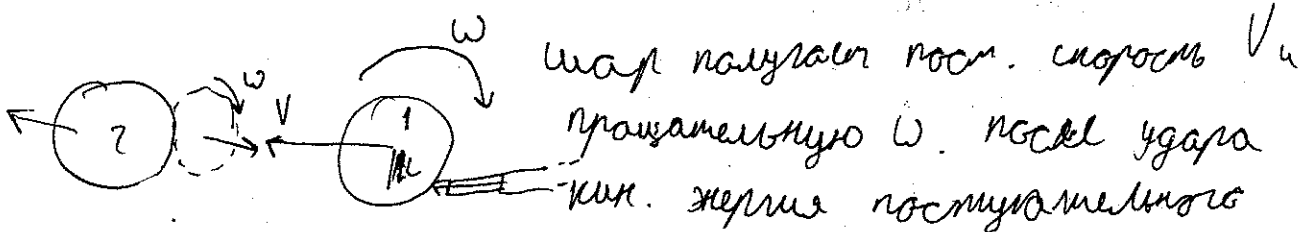 ω шар получает пост. скорость V и
ω V 1 2 вращательную ω. после удара
m кин. энергия поступательного